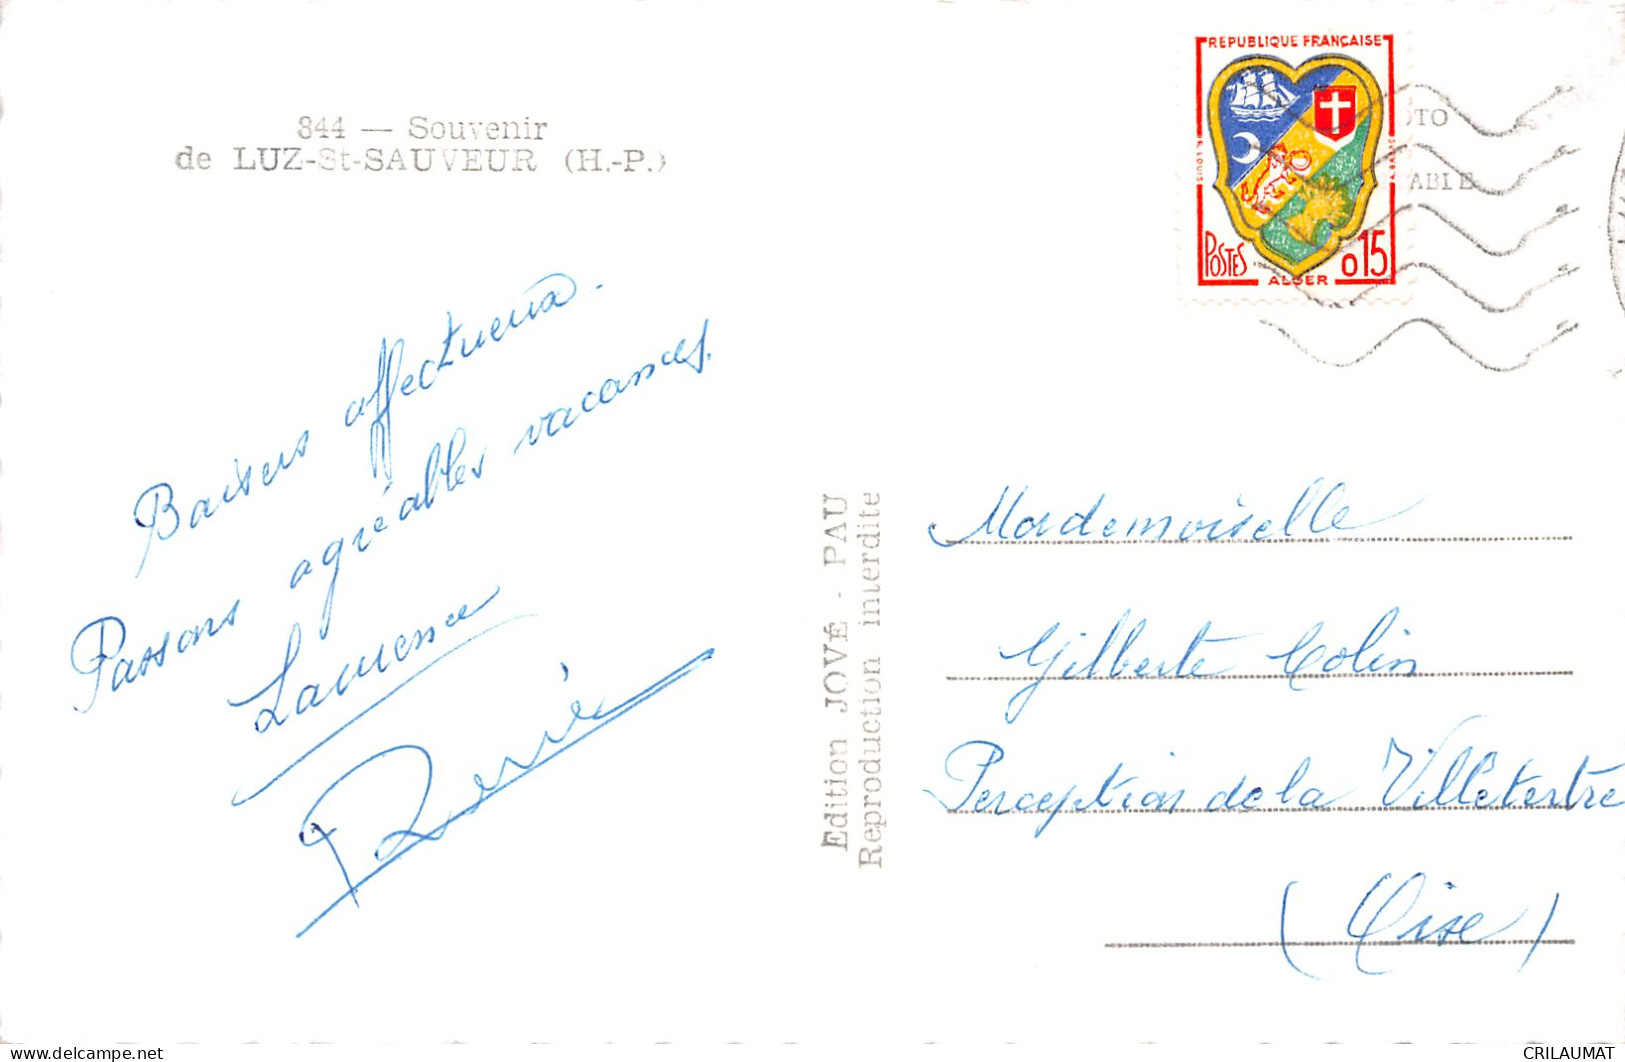 844 — Souvenir
de LUZ-St-SAUVEUR (H.-P.)
Baisers affectueux.
Passons agréables vacances.
Laurence
René
Edition JOVÉ - PAU
Reproduction interdite
RÉPUBLIQUE FRANÇAISE
POSTES
ALGER
0,15
OTO
ABLE
Mademoiselle
Gilberte Colin
Perception de la Villetertre
(Oise)
CRILAUMAT